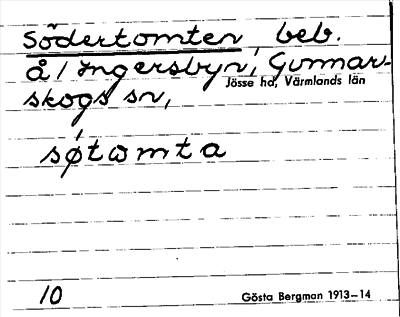 Södertomten beb.
å/ Ingersbyn, Gunnar-
skogs sn,
Jösse hd, Värmlands län
sǿtωmta
10
Gösta Bergman 1913–14